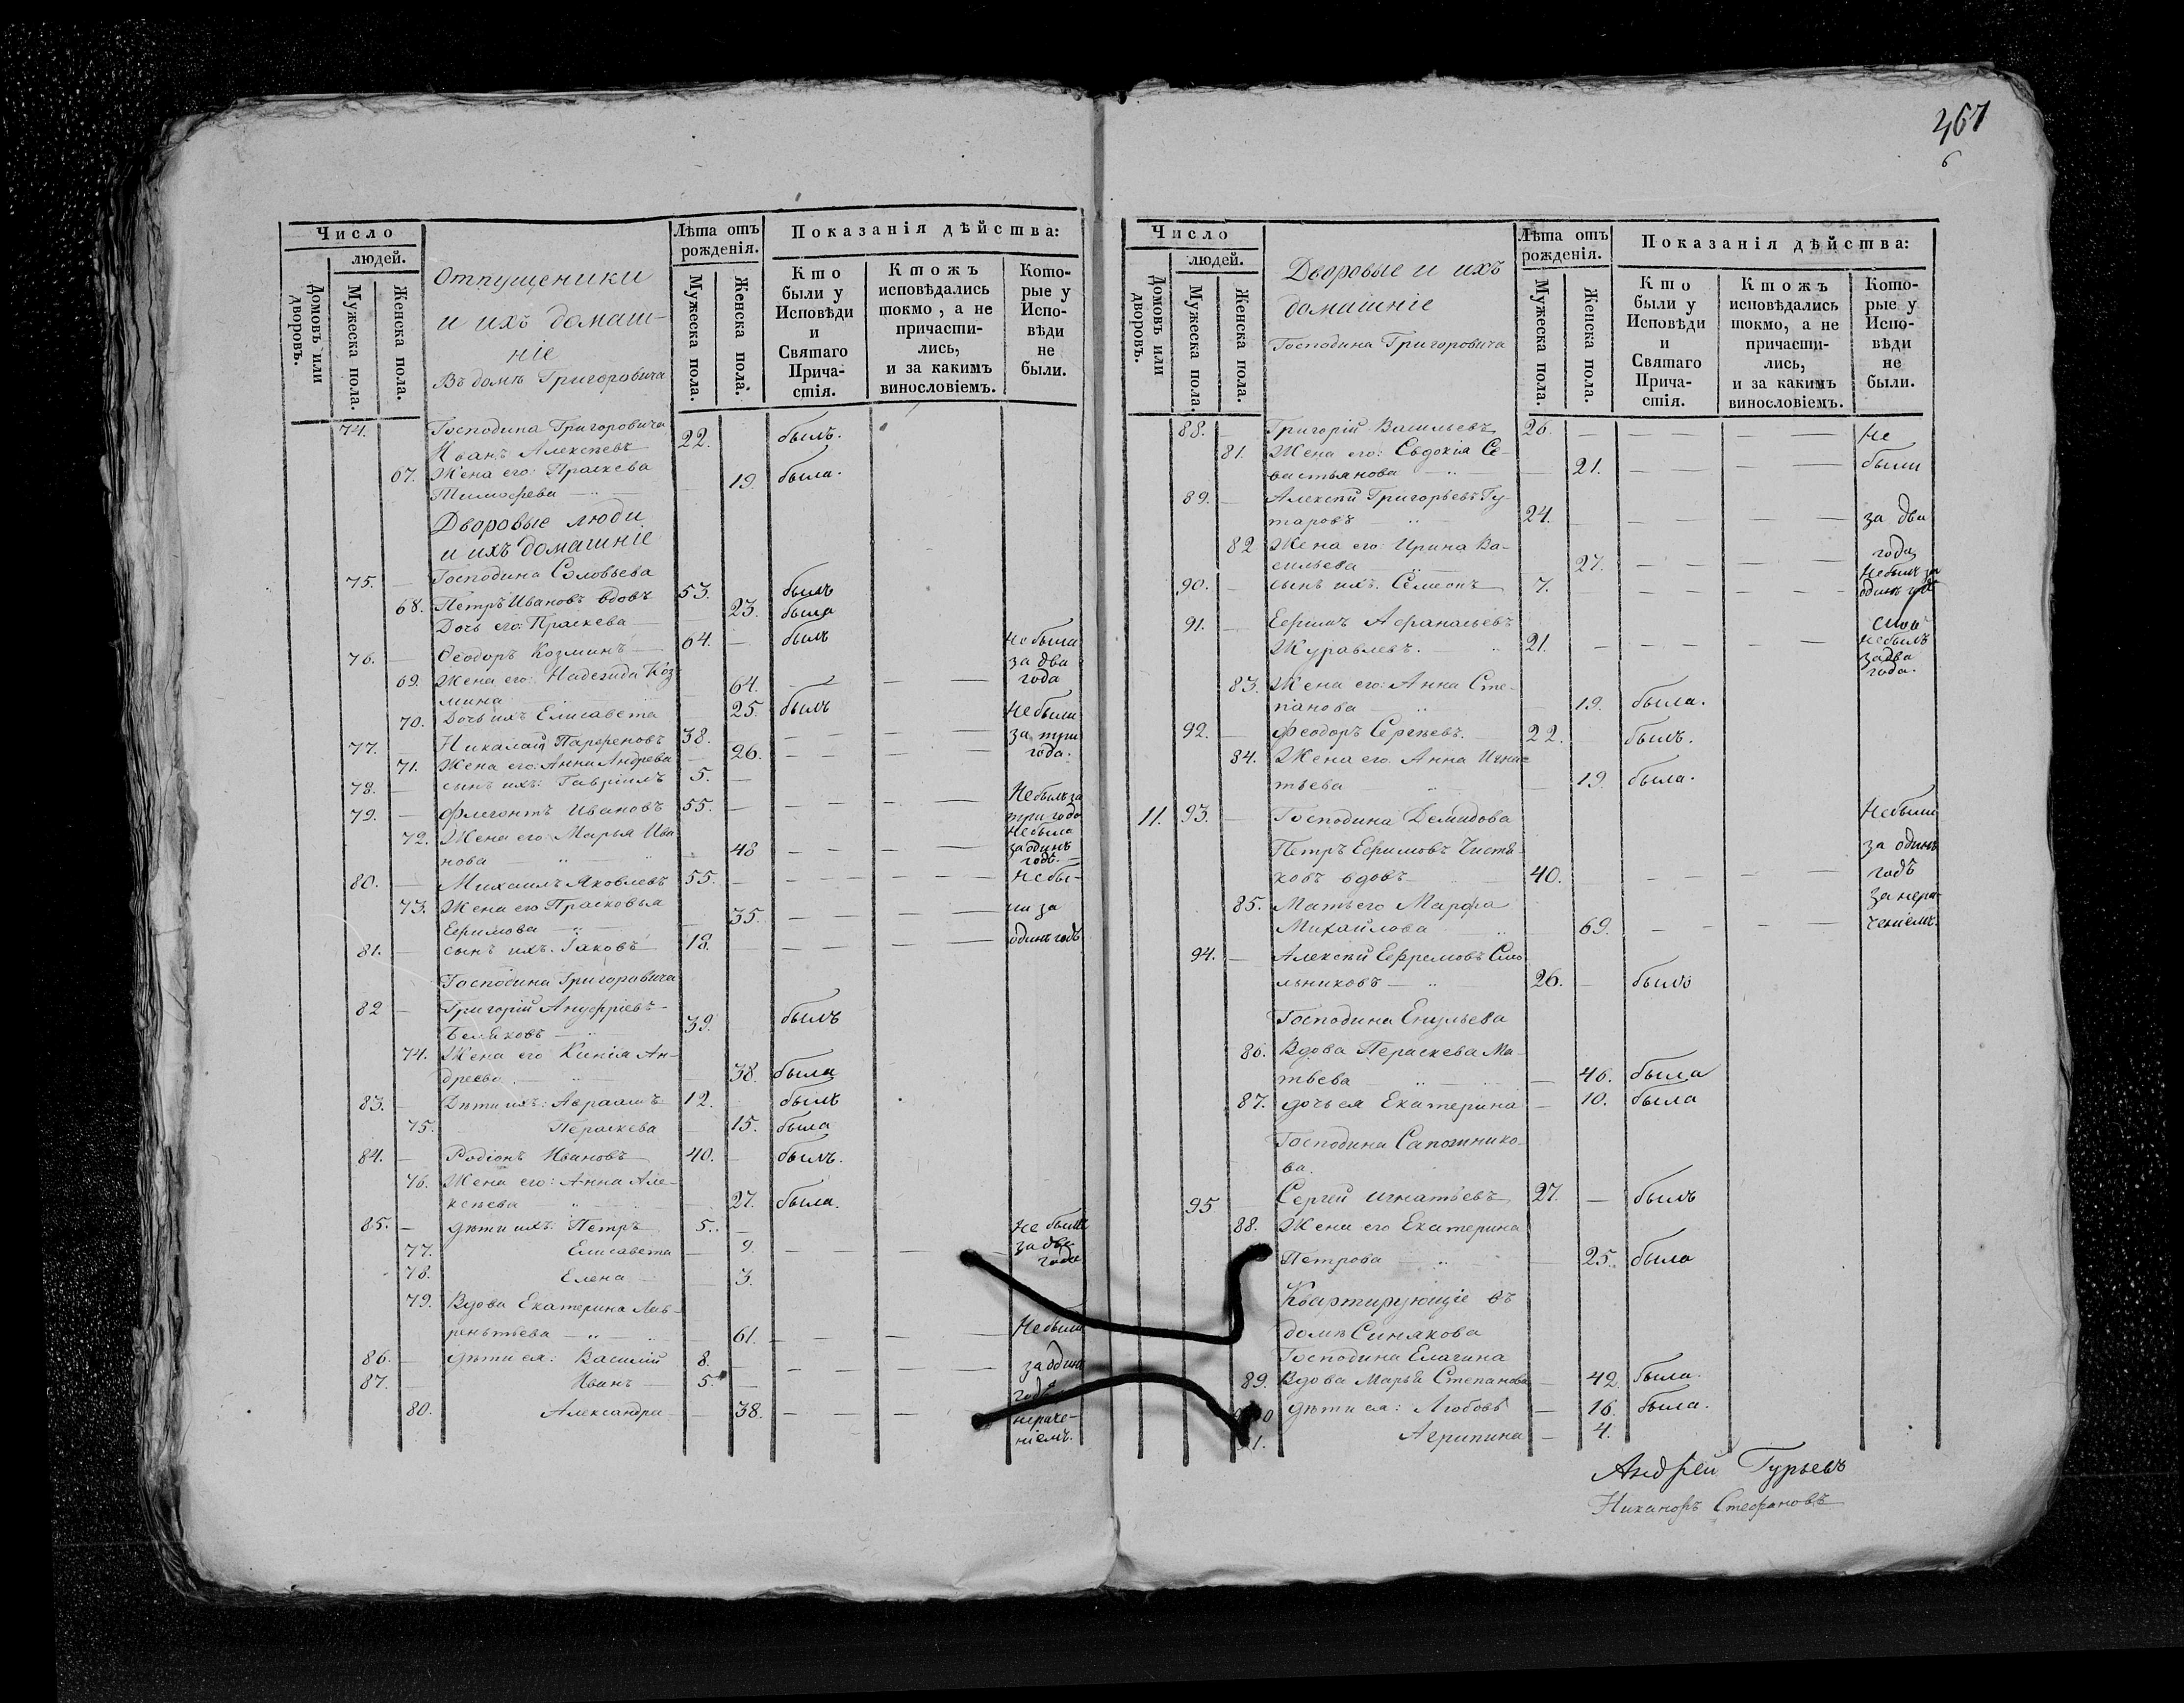 467
6
Число
людей.
Домовъ или дворовъ.
Мужеска пола.
Женска пола.
Отпущеники
и ихъ домаш-
ніе
Въ домѣ Григоровича
Лѣта отъ рожденія.
Мужеска пола.
Женска пола.
Показанія дѣйства:
Кто были у Исповѣди и Святаго Прича-стія.
Ктожъ исповѣдались токмо, а не причасти-лись, и за какимъ винословіемъ.
Кото-рые у Испо-вѣди не были.
74. Господина Григоровича
Иванъ Алексѣевъ 22. былъ.
67. Жена его: Праскева
Тимофеева 19. была.
Дворовые люди
и ихъ домашніе
Господина Соловьева
75. Петръ Ивановъ вдовъ 53. былъ
68. Дочь его: Праскева 23. была
76. Ѳеодоръ Козминъ 64. былъ
69. Жена его: Надежда Коз
мина 64. Не была за два года
70. Дочь ихъ Елисавета 25. былъ
77. Николай Парфеновъ 38. Не были
71. Жена его: Анна Андреева 26. за три года.
78. сынъ ихъ: Гавріилъ 5.
79. Флегонтъ Ивановъ 55. Не былъ за три года
72. Жена его Марья Ива
нова 48 Не была за одинъ годъ.
80. Михаилъ Яковлевъ 55. не бы-
73. Жена его Прасковья
Ефимова 35. ли за
81. сынъ ихъ. Іаковъ 18. одинъ годъ
Господина Григоровича
82 Григорій Ануфріевъ
Беляковъ 39. былъ
74. Жена его Ксенія Ан-
дреева. 38. была
83. Дѣти ихъ: Авраамъ 12. былъ
75. Пераскева 15. была
84. Родіонъ Ивановъ 40. былъ.
76. Жена его: Анна Але-
ксѣева 27. была.
85. дѣти ихъ: Петръ 5. Не были
77. Елисавета 9. за два
78. Елена 3. года
79. Вдова Екатерина Лав-
рентьева 61. Не были
86. дѣти ея: Василій 8. за одинъ
87. Иванъ 5. годъ
80. Александра 38. нераче-
ніемъ.
Число
людей.
Домовъ или дворовъ.
Мужеска пола.
Женска пола.
Дворовые и ихъ
домашніе
Господина Григоровича
Лѣта отъ рожденія.
Мужеска пола.
Женска пола.
Показанія дѣйства:
Кто были у Исповѣди и Святаго Прича-стія.
Ктожъ исповѣдались токмо, а не причасти-лись, и за какимъ винословіемъ.
Кото-рые у Испо-вѣди не были.
88. Григорій Васильевъ 26. Не
81. Жена его: Евдокія Се-
вастьянова 21. были
89. Алексѣй Григорьевъ Гу-
таровъ 24. за два
82 Жена его: Ирина Ва-
сильева 27. года
90. сынъ ихъ. Семеонъ 7. Не былъ за одинъ годъ
91. Ефимъ Афанасьевъ
Журавлевъ. 21. не былъ за два года.
83. Жена его: Анна Сте-
панова 19. была.
92. Феодоръ Сергѣевъ. 22. былъ.
84. Жена его Анна Игна-
тьева 19. была.
11. 93. Господина Демидова Не были
Петръ Ефимовъ Чистя- за одинъ
ковъ вдовъ 40. годъ
85. Мать его Марфа за нера-
Михайлова 69. ченіемъ.
94. Алексѣй Ефремовъ
льниковъ 26. былъ
Господина
86. Вдова Пераскева Ма-
твева 46. была
87. дочь ея Екатерина 10. была
Господина Сапожнико-
ва.
95 Сергей Игнатьевъ 27. былъ
88. Жена его Екатерина
Петрова 25. была
Квартирующіе въ
домѣ Синякова
Господина Елагина
89. Вдова Марья Степанова 42 была.
дѣти ея: Любовь 16. была.
Агрипина 4.
Андрей Гурьевъ
Никаноръ Стефановъ